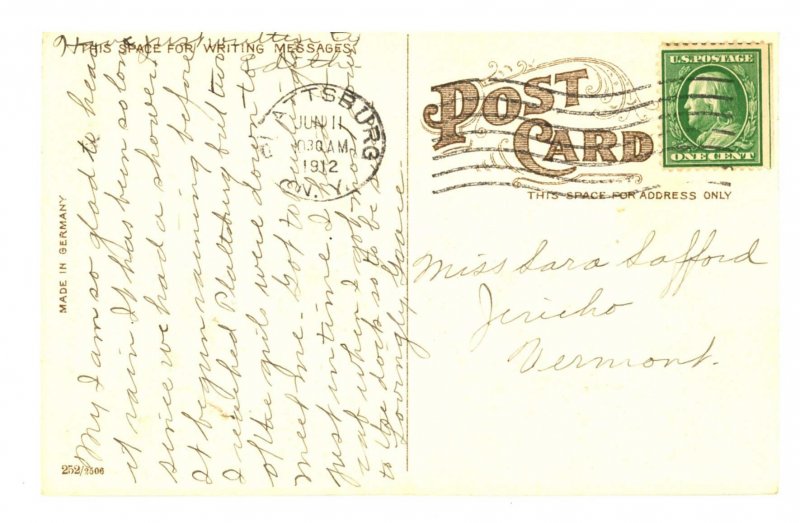 THIS SPACE FOR WRITING MESSAGES.
My I am so glad to hear
it rain It has been so long
since we had a shower.
It begun raining before
I reached Plattsburg but two
of the girls were down to
meet me. Got to
just in time. I
rat when I got
to the dock so to be
Lovingly Grace
MADE IN GERMANY
252/2506
PLATTSBURG
JUN 11
1030 AM
1912
N.Y.
POST CARD
THIS SPACE FOR ADDRESS ONLY
U.S. POSTAGE
ONE CENT
Miss Sara Safford
Jericho
Vermont.